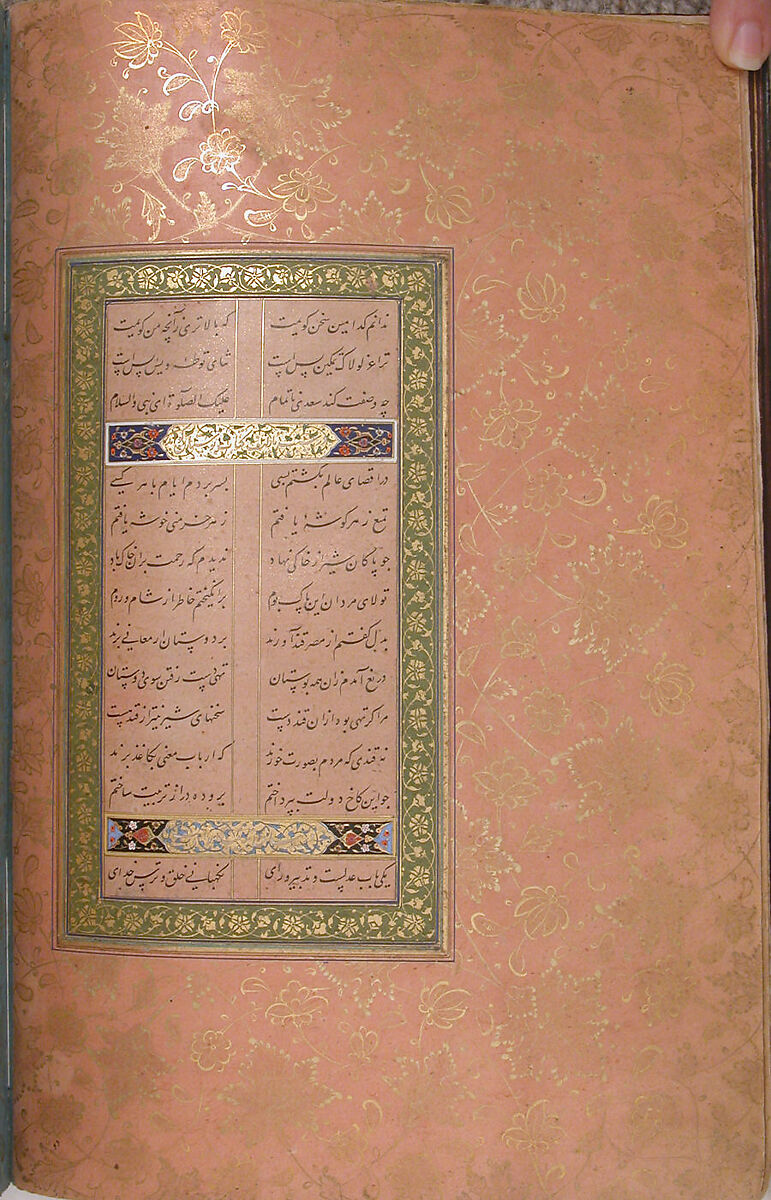 ندانم کدامین سخن گویمت که بالاتری زآنچه من گویمت
ترا عز لولاک تمکین بس است ثنای تو طه و یس بس است
چه وصفت کند سعدی ناتمام علیک الصلوة ای نبی والسلام
در اقصای عالم بگشتم بسی بسر بردم ایام با هر کسی
تمتع ز هر گوشۀ یافتم ز هر خرمنی خوشۀ یافتم
چو پاکان شیراز خاکی نهاد ندیدم که رحمت بران خاک باد
تولای مردان این پاک بوم برانگیختم خاطر از شام و روم
بدل گفتم از مصر قند آورند بر دوستان ارمغانی برند
دریغ آمدم زان همه بوستان تهی دست رفتن سوی دوستان
مرا گر تهی بود ازان قند دست سخنهای شیرین‌تر از قند هست
نه قندی که مردم بصورت خورند که ارباب معنی بکاغذ برند
چو این کاخ دولت بپرداختم برو ده در از تربیت ساختم
یکی باب عدلست و تدبیر و رای نگهبانی خلق و ترس خدای